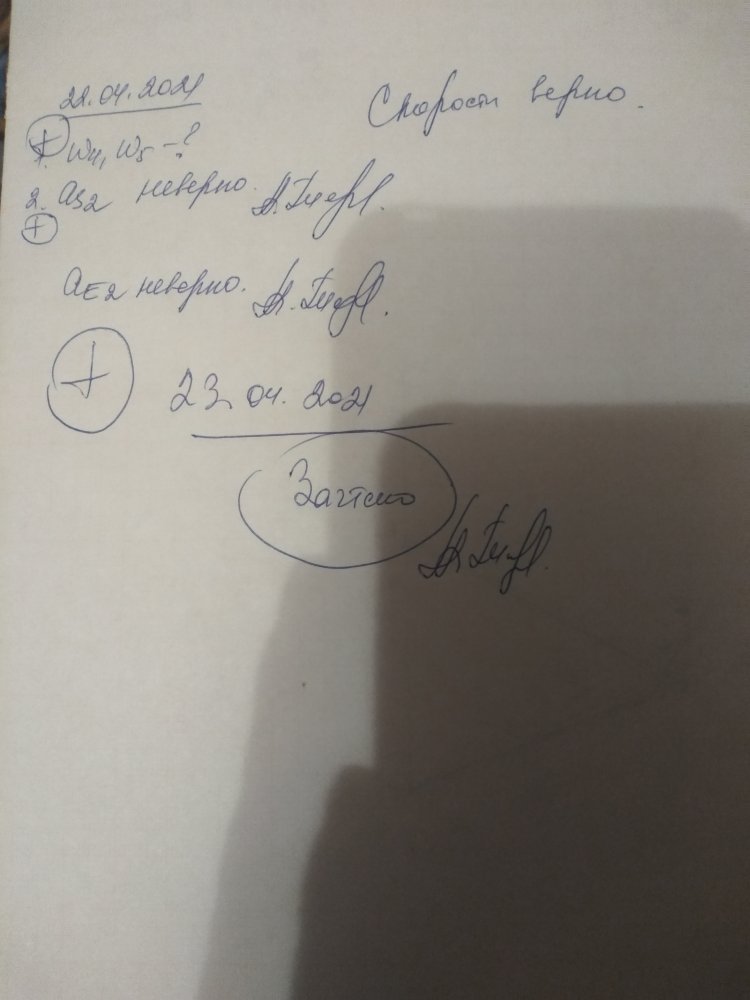 22.04.2021
Скорости верно.
1. ω4, ω5 - ?
+
2. aS2 неверно.
+
aE2 неверно.
+
23.04.2021
Зачтено